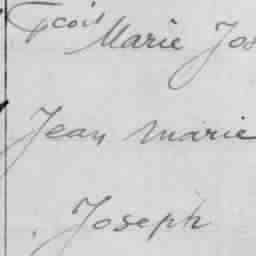 Fçois
Marie Jos
Jean Marie
Joseph